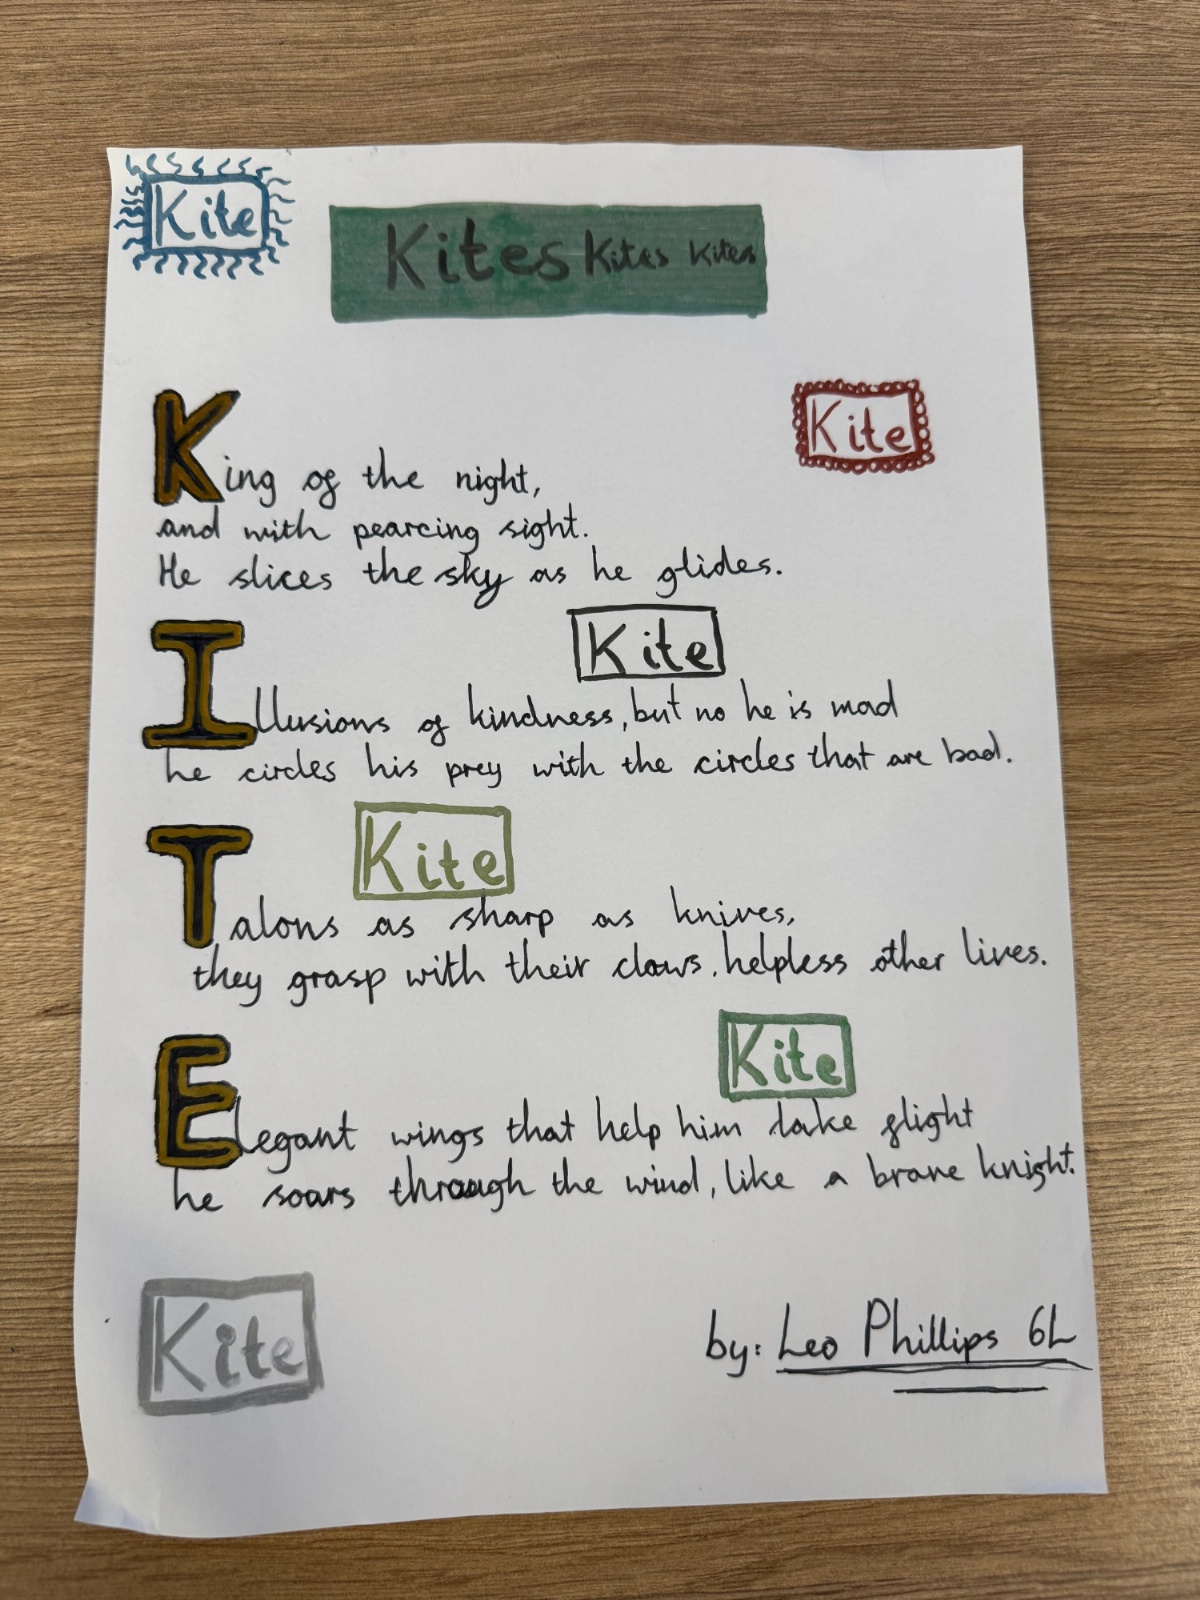 Kite
Kites Kites Kites
Kite
King of the night,
and with pearcing sight.
He slices the sky as he glides.
Kite
Illusions of kindness, but no he is mad
he circles his prey with the circles that are bad.
Kite
Talons as sharp as knives,
they grasp with their claws, helpless other lives.
Kite
Elegant wings that help him take flight
he soars through the wind, like a brave knight.
Kite
by: Leo Phillips 6L